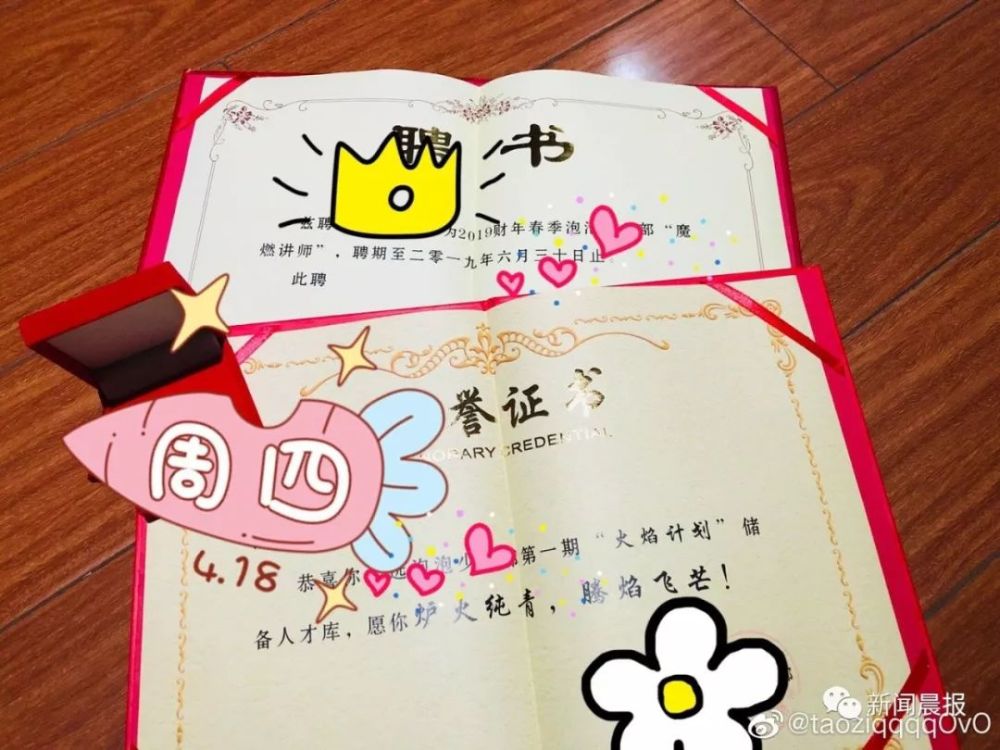 聘书
兹聘 为2019财年春季泡泡 部“魔
燃讲师”，聘期至二零一九年六月三十日止
此聘
誉证书
ORARY CREDENTIAL
周四
4.18
恭喜你 选泡泡少 部第一期“火焰计划”储
备人才库，愿你炉火纯青，腾焰飞芒！
新闻晨报
@taoziqqqqOvO